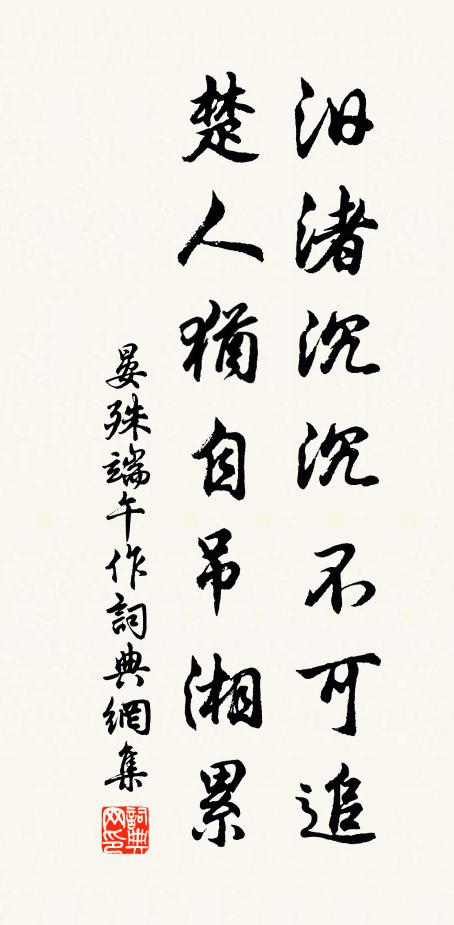 汨渚沉沉不可追
楚人猶自吊湘累
晏殊端午作詞典網集
詞典網印